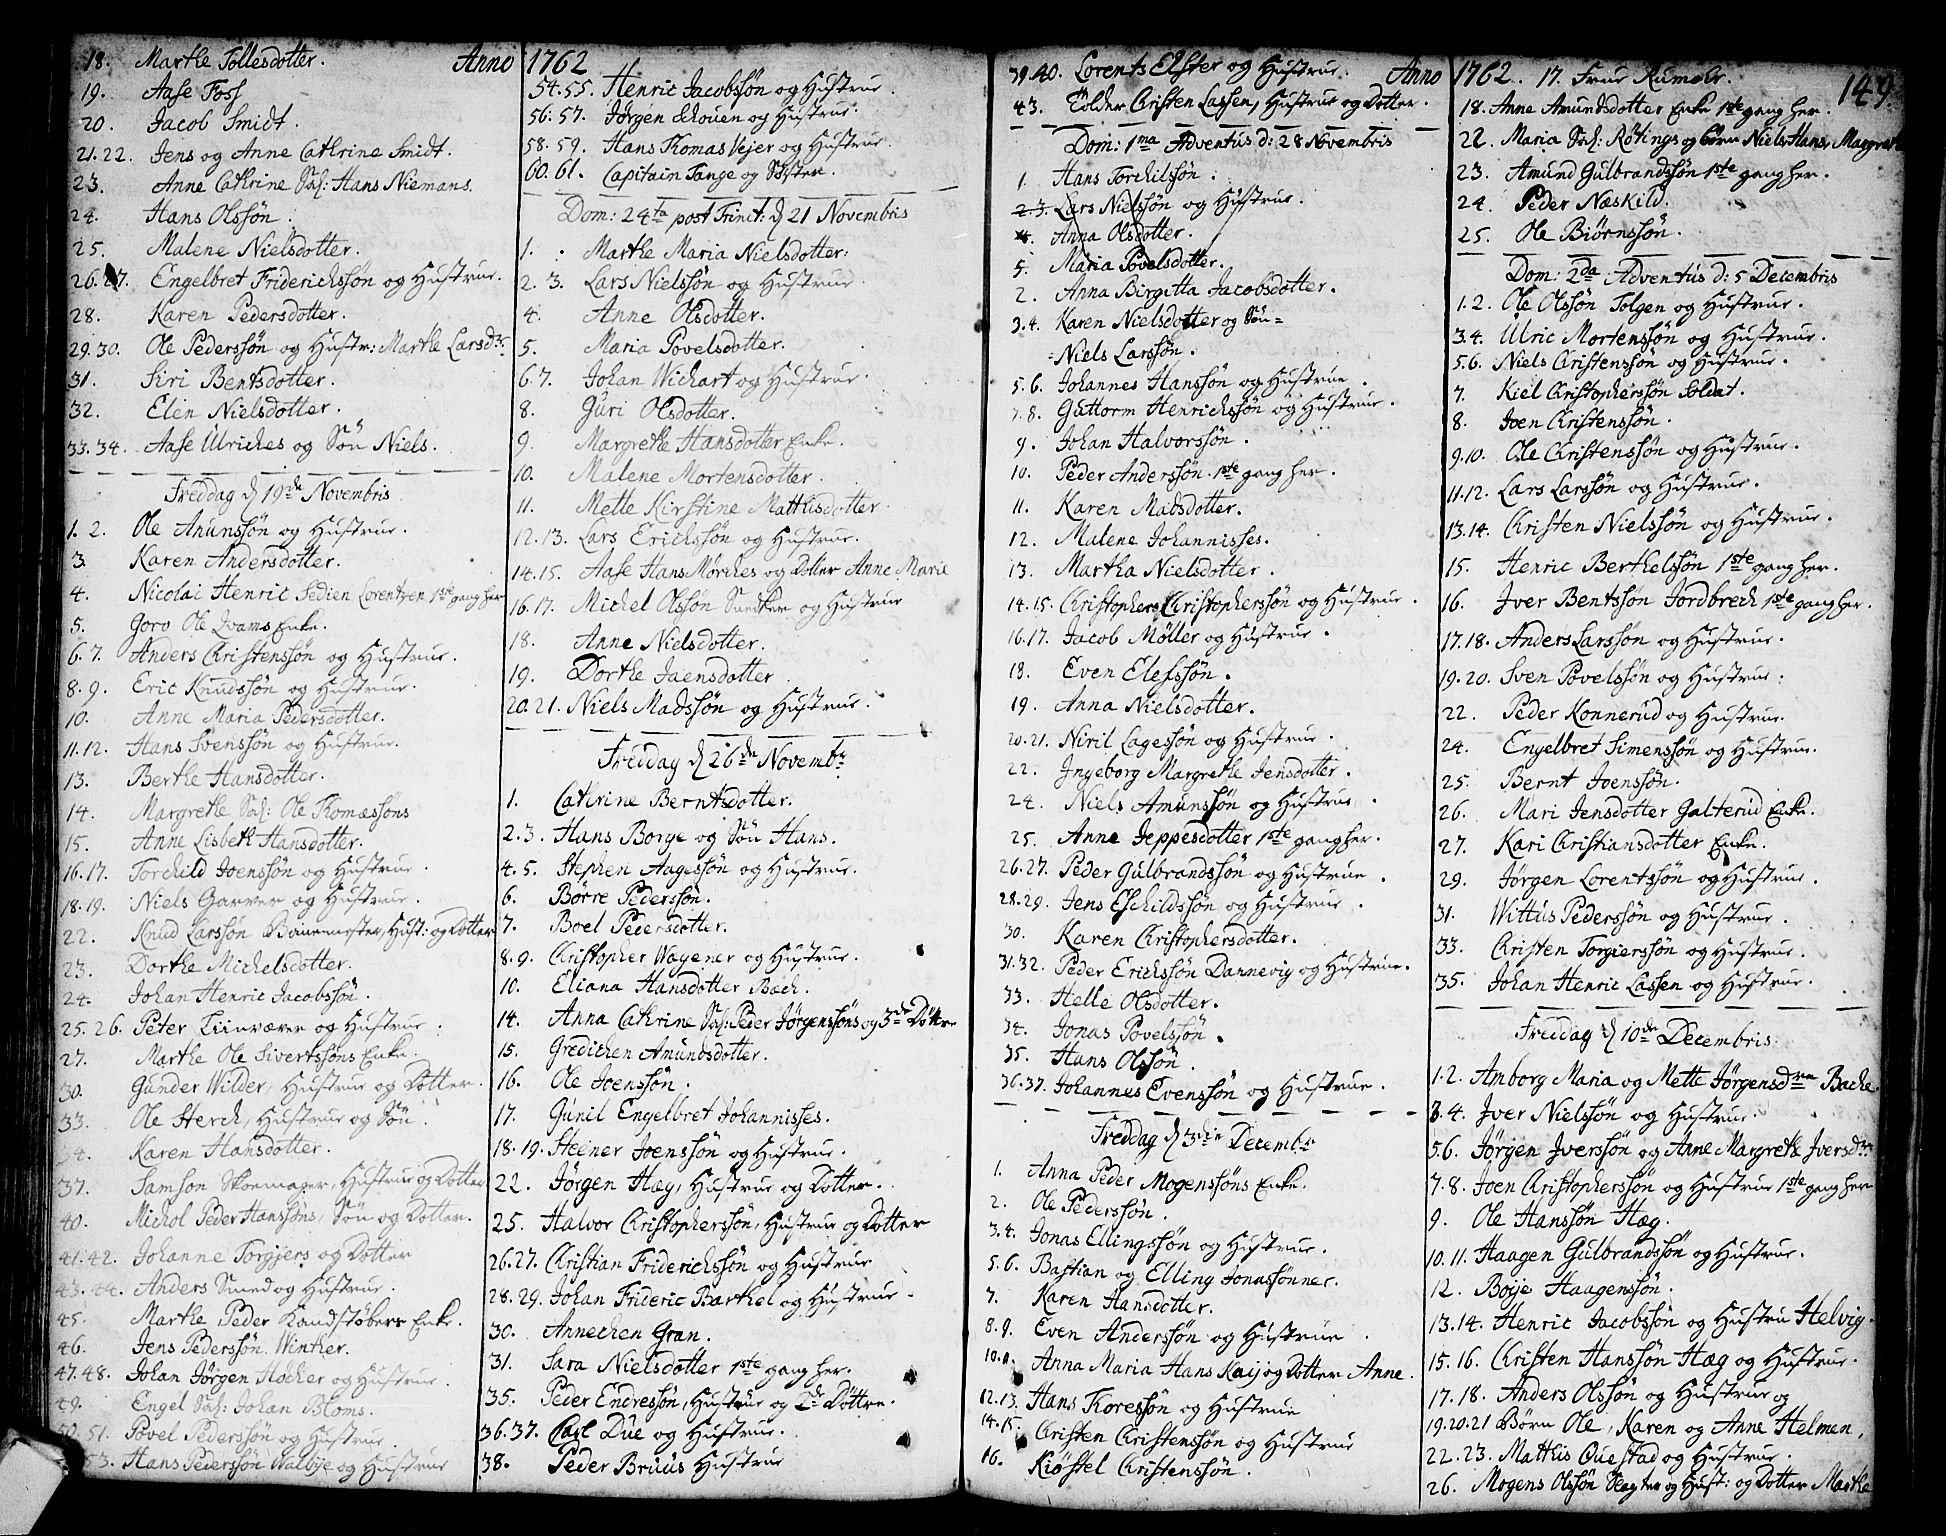 18. Marthe Tollesdotter.
19. Aase Foss
20. Jacob Smidt.
21. 22. Jens og Anne Cathrine Smidt.
23. Anne Cathrine Sal: Hans Niemans.
24. Hans Olssøn.
25. Malene Nielsdotter.
26. 27. Engelbret Friderichssøn og Hustrue.
28. Karen Pedersdotter.
29. 30. Ole Pederssøn og Hustr: Marthe Larsdtr.
31. Siri Bentsdotter.
32. Elen Nielsdotter.
33. 34. Aase Ulriches og Søn Niels.
Freddag d 19de Novembris
1. 2. Ole Anunssøn og Hustrue.
3. Karen Andersdotter.
4. Nicolai Henric Sedien Lorentzen 1ste gang her
5. Goro Ole Qvams Enke.
6. 7. Anders Christenssøn og Hustrue.
8. 9. Eric Knudssøn og Hustrue.
10. Anne Maria Pedersdotter.
11. 12. Hans Svenssøn og Hustrue.
13. Berthe Hansdotter.
14. Margrethe Sal: Ole Thomæssøns
15. Anne Lisbeth Hansdotter.
16. 17. Torchild Joenssøn og Hustrue.
18. 19. Niels Garver og Hustrue.
22. Knud Larssøn Banemester, Hust: og Dotter
23. Dorthe Michelsdotter.
24. Johan Henric Jacobssøn.
25. 26. Peter og Hustrue.
27. Marthe Ole Sivertssøns Enke.
30. Gunder Wilder, Hustrue og Dotter.
33. Ole Sterch, Hustrue og Søn.
34. Karen Hansdotter.
37. Samson Skoemager, Hustrue og Dotter
40. Michol Peder Hanssøns, Søn og Dotter.
41. 42. Johanne Torgjers og Dotter
43. 44. Anders Smed og Hustrue.
45. Marthe Peder Kandstøbers Enke.
46. Jens Pederssøn Winther.
47. 48. Johan Jørgen Høcker og Hustrue.
49. Engel Sal: Johan Bloms.
50. 51. Povel Pederssøn og Hustrue.
53. Hans Pederssøn Walbye og Hustrue
Anno 1762
54. 55. Henric Jacobssøn og Hustrue.
56. 57. Jørgen Schouen og Hustrue
58. 59. Hans Thomas Vejer og Hustrue.
60. 61. Capitain Tange og Søster.
Dom: 24ta post Trinit: d 21 Novembris
1. Marthe Maria Nielsdotter.
2. 3. Lars Nielssøn og Hustrue.
4. Anne Olsdotter.
5. Maria Povelsdotter.
6. 7. Johan Wichart og Hustrue.
8. Guri Olsdotter.
9. Margrethe Hansdotter Enke.
10. Malene Mortensdotter.
11. Mette Kirstine Matthisdotter.
12. 13. Lars Erichssøn og Hustrue.
14. 15. Aase Hans Mørches og Dotter Anne Marie
16. 17. Michel Olssøn Snedker og Hustrue
18. Anne Nielsdotter.
19. Dorthe Jaensdotter
20. 21. Niels Madssøn og Hustrue.
Freddag d 26de Novembr
1. Cathrine Berntsdotter.
2. 3. Hans Borge og Søn Hans.
4. 5. Stephen Aagessøn og Hustrue.
6. Børre Pederssøn.
7. Boel Pedersdotter.
8. 9. Christopher Wagener og Hustrue.
10. Eliana Hansdotter Bach.
14. Anna Cathrine Sal: Peder Jørgenssøns og 3de Døttre
15. Gredichen Amundsdotter.
16. Ole Joenssøn.
17. Gunil Engelbret Johannisses.
18. 19. Steener Joenssøn og Hustrue.
22. Jørgen Hæg, Hustrue og Dotter.
25. Halvor Christopherssøn, Hustrue og Dotter
26. 27. Christian Friderichssøn og Hustrue
28. 29. Johan Frideric Barthel og Hustrue.
30. Annechen Gran.
31. Sara Nielsdotter 1ste gang her.
35. Peder Endressøn, Hustrue og 2de Døttre.
36. 37. Carl Due og Hustrue.
38. Peder Bruus Hustrue
39. 40. Lorents Elster og Hustrue.
43. Tolder Christen Lassen, Hustrue og Dotter.
Dom: 1ma Adventus d: 28 Novembris
1. Hans Torchilssøn.
2. 3. Lars Nielssøn og Hustrue.
4. Anna Olsdotter.
5. Maria Povelsdotter.
2. Anna Birgitta Jacobsdotter.
3. 4. Karen Nielsdotter og Søn=
=Niels Larssøn.
5. 6. Johannes Hanssøn og Hustrue.
7. 8. Guttorm Henrichssøn og Hustrue.
9. Johan Halvorssøn.
10. Peder Anderssøn 1ste gang her.
11. Karen Madsdotter.
12. Malene Johannisses.
13. Martha Nielsdotter.
14. 15. Christopher Christopherssøn og Hustrue.
16. 17. Jacob Møller og Hustrue.
18. Even Elefssøn.
19. Anna Nielsdotter.
20. 21. Niril Lagessøn og Hustrue.
22. Jngeborg Margrethe Jensdotter.
24. Niels Amunssøn og Hustrue.
25. Anne Jeppesdotter 1ste gang her.
26. 27. Peder Gulbrandssøn og Hustrue.
28. 29. Jens Eschildssøn og Hustrue.
30. Karen Christophersdotter.
31. 32. Peder Erichssøn Dannevig og Hustrue.
33. Helle Olsdotter.
34. Jonas Povelssøn.
35. Hans Olssøn.
36. 37. Johannes Evenssøn og Hustrue.
Freddag d 3die Decembr
1. Anna Peder Mogenssøns Enke.
2. Ole Pederssøn.
3. 4. Jonas Ellingssøn og Hustrue.
5. 6. Bastian og Elling Jonassønner.
7. Karen Hansdotter.
8. 9. Even Anderssøn og Hustrue.
10. 11. Anna Maria Hans Kaij og Dotter Anne.
12. 13. Hans Thoressøn og Hustrue
14. 15. Christen Christenssøn og Hustrue
16. Kiøstel Christenssøn.
Anno 1762. 17. Frue Rumohr. 149.
18. Anne Amundsdotter Enke 1ste gang her.
22. Maria Sal: Røtings og Børn Niels, Hans, Margrethe
23. Amund Gulbrandssøn 1ste gang her.
24. Peder Næskild.
25. Ole Biørnssøn.
Dom: 2da Adventus d: 5 Decembris
1. 2. Ole Olssøn Tolgen og Hustrue.
3. 4. Ulric Mortenssøn og Hustrue.
5. 6. Niels Christenssøn og Hustrue.
7. Kiel Christopherssøn Soldat.
8. Joen Christenssøn.
9. 10. Ole Christenssøn og Hustrue.
11. 12. Lars Larssøn og Hustrue.
13. 14. Christen Nielssøn og Hustrue.
15. Henric Berthelssøn 1ste gang her.
16. Jver Bentssøn Jordbrech 1ste gang her.
17. 18. Anders Larssøn og Hustrue.
19. 20. Sven Povelssøn og Hustrue.
22. Peder Konnerud og Hustrue.
24. Engelbret Simenssøn og Hustrue.
25. Bernt Joenssøn.
26. Mari Jensdotter Galterud Enke.
27. Kari Christiansdotter Enke.
29. Jørgen Lorentssøn og Hustrue.
31. Wittus Pederssøn og Hustrue.
33. Christen Torgierssøn og Hustrue.
35. Johan Henric Lassen og Hustrue.
Freddag d 10de Decembris
1. 2. Amborg Maria og Mette Jørgensdtre Bache.
3. 4. Jver Nielssøn og Hustrue.
5. 6. Jørgen Jverssøn og Anne Margrethe Jversdtr
7. 8. Joen Christopherssøn og Hustrue 1ste gang her
9. Ole Hanssøn Hæg.
10. 11. Haagen Gulbrandssøn og Hustrue.
12. Boije Haagenssøn.
13. 14. Henric Jacobssøn og Hustru Helvig.
15. 16. Christen Hanssøn Hæg og Hustrue.
17. 18. Anders Olssøn og Hustrue og
19. 20. 21 Børn Ole, Karen og Anne Helmen,
22. 23. Matthis Questad og Hustrue.
26. Mogens Olssøn Slagter og Hust: og Dotter Marthe